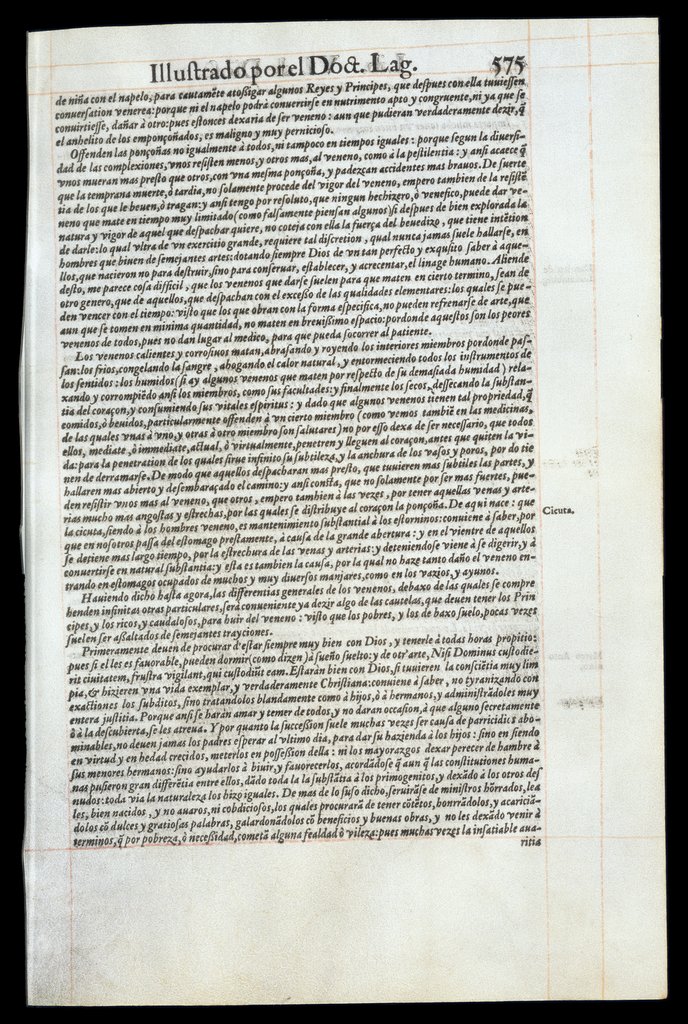 Illuſtrado por el Doct. Lag. 575
de niña con el napelo, para cautamẽte atoßigar algunos Reyes y Principes, que deſpues con ella tuuieſſen
conuerſation venerea: porque ni el napelo podrà conuertirſe en nutrimento apto y congruente, ni ya que ſe
conuirtieſſe, dañar à otro: pues eſtonces dexaria de ſer veneno: aun que pudieran verdaderamente dezir, q̃
el anhelito de los emponçoñados, es maligno y muy pernicioſo.
Offenden las ponçoñas no igualmente à todos, ni tampoco en tiempos iguales: porque ſegun la diuerſi-
dad de las complexiones, vnos reſiſten menos, y otros mas, al veneno, como à la peſtilentia: y anſi acaece q̃
vnos mueran mas preſto que otros, con vna meſma ponçoña, y padezcan accidentes mas brauos. De ſuerte
que la temprana muerte, ò tardia, no ſolamente procede del vigor del veneno, empero tambien de la reſiſtẽ
tia de los que le beuen, ò tragan: y anſi tengo por reſoluto, que ningun hechizero, ò venefico, puede dar ve-
neno que mate en tiempo muy limitado (como falſamente pienſan algunos) ſi deſpues de bien explorada la
natura y vigor de aquel que deſpachar quiere, no coteja con ella la fuerça del beuedizo, que tiene intẽtion
de darle: lo qual vltra de vn exercitio grande, requiere tal diſcretion, qual nunca jamas ſuele hallarſe, en
hombres que biuen de ſemejantes artes: dotando ſiempre Dios de vn tan perfecto y exquiſito ſaber à aque-
llos, que nacieron no para deſtruir, ſino para conſeruar, eſtablecer, y acrecentar, el linage humano. Aliende
deſto, me parece coſa difficil, que los venenos que darſe ſuelen para que maten en cierto termino, ſean de
otro genero, que de aquellos, que deſpachan con el exceſſo de las qualidades elementares: los quales ſe pue-
den vencer con el tiempo: viſto que los que obran con la forma eſpecifica, no pueden refrenarſe de arte, que
aun que ſe tomen en minima quantidad, no maten en breuiſſimo eſpacio: por donde aqueſtos ſon los peores
venenos de todos, pues no dan lugar al medico, para que pueda ſocorrer al patiente.
Los venenos calientes y corroſiuos matan, abraſando y royendo los interiores miembros por donde paſ-
ſan: los frios, congelando la ſangre, abogando el calor natural, y entormeciendo todos los inſtrumentos de
los ſentidos: los humidos (ſi ay algunos venenos que maten por reſpecto de ſu demaſiada humidad) rela-
xando y corrompiẽdo anſi los miembros, como ſus facultades: y finalmente los ſecos, deſſecando la ſubſtan-
tia del coraçon, y conſumiendo ſus vitales eſpiritus: y dado que algunos venenos tienen tal propriedad, q̃
comidos, ò beuidos, particularmente offenden à vn cierto miembro (como vemos tambiẽ en las medicinas,
de las quales vnas à vno, y otras à otro miembro ſon ſalutares) no por eſſo dexa de ſer neceſſario, que todos
ellos, mediate, ò immediate, actual, ò virtualmente, penetren y lleguen al coraçon, antes que quiten la vi-
da: para la penetration de los quales ſirue infinito ſu ſubtileza, y la anchura de los vaſos y poros, por do tie
nen de derramarſe. De modo que aquellos deſpacharan mas preſto, que tuuieren mas ſubtiles las partes, y
hallaren mas abierto y deſembaraçado el camino: y anſi conſta, que no ſolamente por ſer mas fuertes, pue-
den reſiſtir vnos mas al veneno, que otros, empero tambien à las vezes, por tener aquellas venas y arte-
rias mucho mas angoſtas y eſtrechas, por las quales ſe diſtribuye al coraçon la ponçoña. De aqui nace: que
la cicuta, ſiendo à los hombres veneno, es mantenimiento ſubſtantial à los eſtorninos: conuiene à ſaber, por
que en noſotros paſſa del eſtomago preſtamente, à cauſa de la grande abertura: y en el vientre de aquellos
ſe detiene mas largo tiempo, por la eſtrechura de las venas y arterias: y deteniendoſe viene à ſe digerir, y à
conuertirſe en natural ſubſtantia: y eſta es tambien la cauſa, por la qual no haze tanto daño el veneno en-
trando en eſtomagos ocupados de muchos y muy diuerſos manjares, como en los vazios, y ayunos.
Cicuta.
Hauiendo dicho haſta agora, las differentias generales de los venenos, debaxo de las quales ſe compre
henden infinitas otras particulares, ſerà conueniente ya dezir algo de las cautelas, que deuen tener los Prin
cipes, y los ricos, y caudaloſos, para huir del veneno: viſto que los pobres, y los de baxo ſuelo, pocas vezes
ſuelen ſer aſſaltados de ſemejantes trayciones.
Primeramente deuen de procurar d'eſtar ſiempre muy bien con Dios, y tenerle à todas horas propitio:
pues ſi el les es fauorable, pueden dormir (como dizen) à ſueño ſuelto: y de otr'arte, Niſi Dominus cuſtodie-
rit ciuitatem, fruſtra vigilant, qui cuſtodiũt eam. Eſtarán bien con Dios, ſi tuuieren la conſciẽtia muy lim
pia, & hizieren vna vida exemplar, y verdaderamente Chriſtiana: conuiene à ſaber, no tyranizando con
exactiones los ſubditos, ſino tratandolos blandamente como à hijos, ò à hermanos, y adminiſtrãdoles muy
entera juſtitia. Porque anſi ſe harán amar y temer de todos, y no daran occaſion, à que alguno ſecretamente
ò à la deſcubierta, ſe les atreua. Y por quanto la ſucceſſion ſuele muchas vezes ſer cauſa de parricidios abo-
minables, no deuen jamas los padres eſperar al vltimo dia, para dar ſu hazienda à los hijos: ſino en ſiendo
en virtud y en hedad crecidos, meterlos en poſſeſſion della: ni los mayorazgos dexar perecer de hambre à
ſus menores hermanos: ſino ayudarlos à biuir, y fauorecerlos, acordãdoſe q̃ aun q̃ las conſtitutiones huma-
nas puſieron gran differẽtia entre ellos, dãdo toda la ſubſtãtia à los primogenitos, y dexãdo à los otros deſ
nudos: toda via la naturaleza los hizo iguales. De mas de lo ſuſo dicho, ſeruirãſe de miniſtros hõrrados, lea
les, bien nacidos, y no auaros, ni cobdicioſos, los quales procurarã de tener cõtẽtos, honrrãdolos, y acariciã-
dolos cõ dulces y gratioſas palabras, galardonãdolos cõ beneficios y buenas obras, y no les dexãdo venir à
terminos, q̃ por pobreza, ò neceſſidad, cometã alguna fealdad ò vileza: pues muchas vezes la inſatiable aua-
ritia